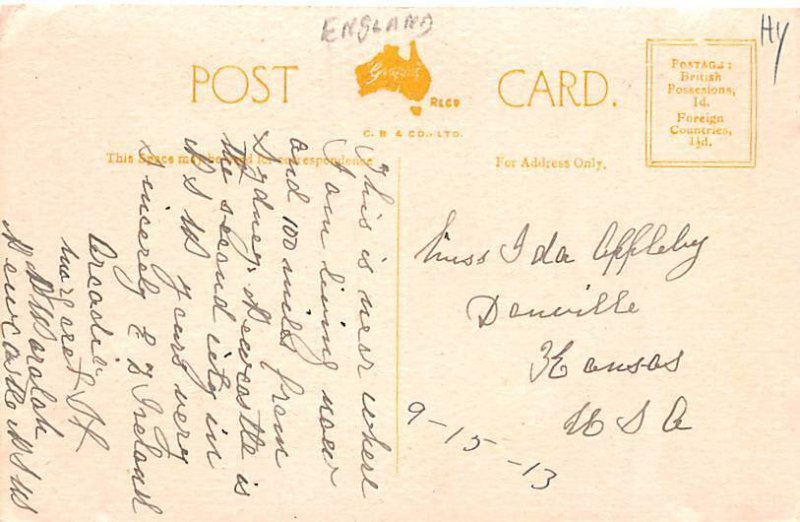 ENGLAND
Hy
POST CARD.
REGD
C. B & CO., LTD.
POSTAGE:
British
Possesions,
1d.
Foreign
Countries,
1½d.
This Space may be used for correspondence
For Address Only.
This is near where
I am living now
and 100 miles from
Sydney. Newcastle is
the second city in
N S W
Yours very
Sincerely E Z Ireland
Arcadia
Margaret St
Newcastle N S W
Miss Ida Appleby
Danville
Kansas
U S A
9-15-13